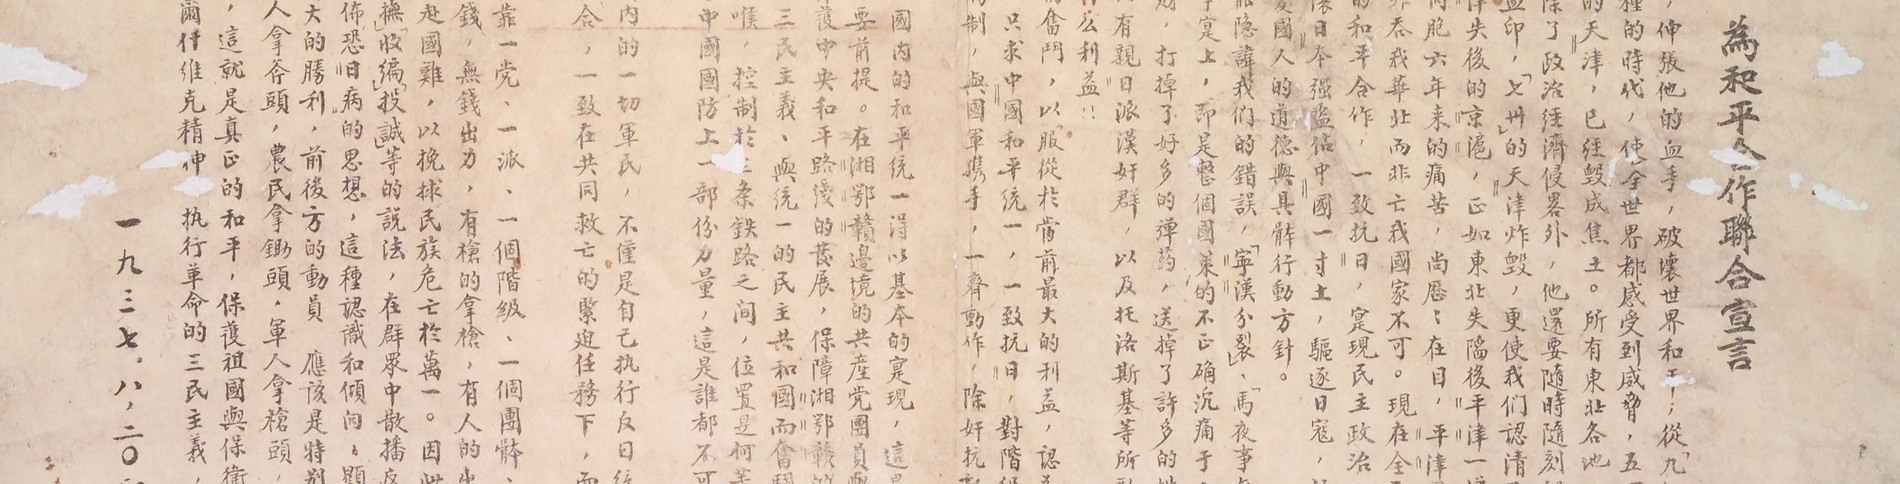 為和平合作聯合宣言
，伸張他的血手，破壞世界和平；從「九
種的時代，使全世界都感受到威脅，五
的天津，已經毀成焦土。所有東北各地
除了政治經濟侵畧外，他還要隨時隨刻
血印，「七卅」的天津炸毀，更使我们認清
津失後的京滬，正如東北失陷後平津一
同胞六年来的痛苦，尚歷：在目，平津
非吞我華北而非亡我國家不可。現在全
的和平合作，一致抗日，寔現民主政治
日本强盜佔中國一寸土，驅逐日寇，
愛國人的道德與具体行動方針。
能隐諱我们的錯誤，「寧漢分裂」、「馬夜事
寔上，即是整個國策的不正确沉痛于
，打掉了好多的彈葯，送掉了許多的
有親日派漢奸群，以及托洛斯基等所
公利益！！
奮鬥，以服從於當前最大的利益，認
只求中國和平統一，一致抗日，對階級
制，與國軍携手，一齊動作，除奸抗
國内的和平統一得以基本的寔現，這是
要前提。在湘鄂贛邊境的共產党團員
護中央和平路綫的發展，保障湘鄂贛的
三民主義、與統一的民主共和國而奮鬥
喉，控制於三条鉄路之间，位置是何等
中國國防上一部份力量，這是誰都不可
内的一切軍民，不僅是自己执行反日統
合，一致在共同救亡的緊迫任務下，而
靠一党、一派、一個階級、一個團体、
錢，無錢出力，有槍的拿槍，有人的出
赴國難，以挽救民族危亡於萬一。因此
撫」「收編」「投誠」等的説法，在群眾中散播反
佈恐日病的思想，這種認識和傾向，顯
大的勝利，前後方的動員 應該是特别
人拿斧頭，農民拿鋤頭，軍人拿槍頭，
，這就是真正的和平，保護祖國與保衛
爾什維克精神 执行革命的三民主義，
一九三七．八．二〇